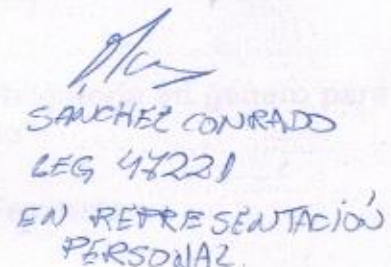 SANCHEZ CONRADO
LEG 48221
EN REPRESENTACIÓN
PERSONAL.